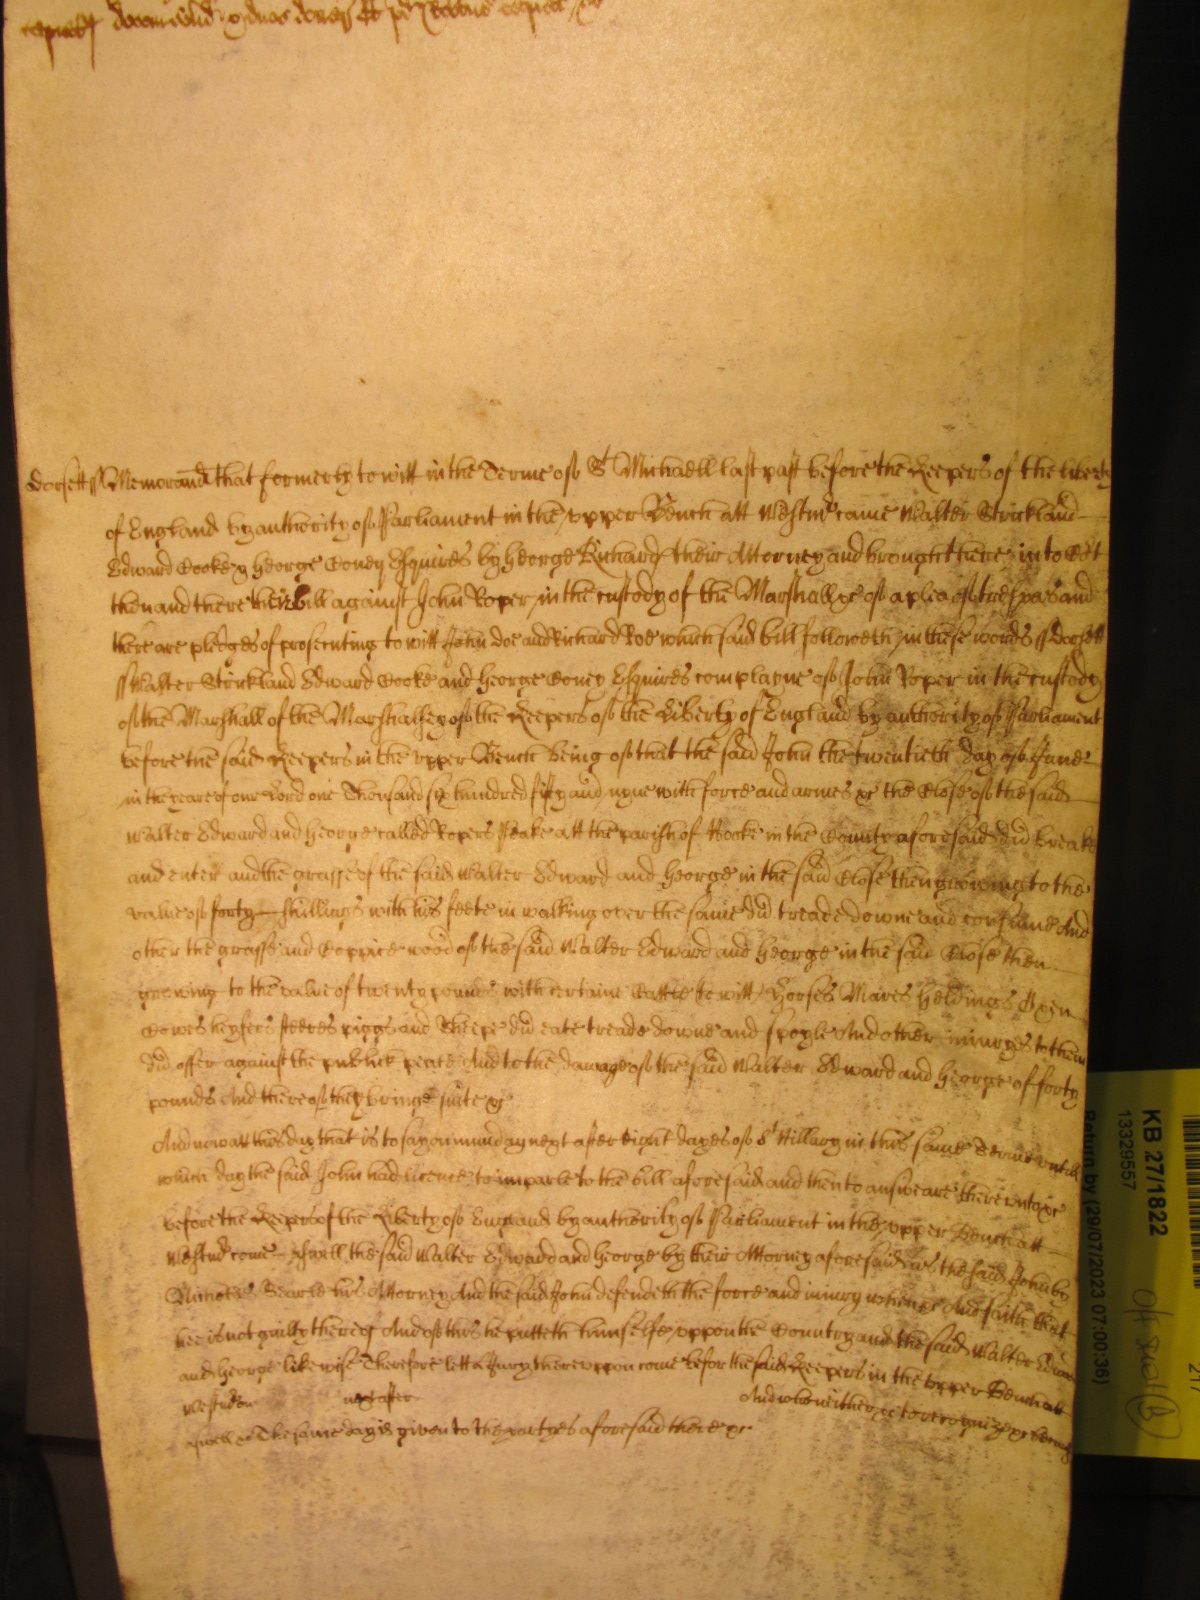 Dorsett ss Memorand that formerly to witt in the Terme of St Michaell last past before the Keepers of the liberty
of England by authority of Parliament in the upper Bench att Westmr came Walter Strickland
Edward Cooke & George Coney Esquires by George Richards their Attorney and brought here into Court
then and there their bill against John Roper in the custody of the Marshall &c of a plea of trespas and
there are pledges of prosecuting to witt John Doe and Richard Roe which said bill followeth in these words ss Dorsett
ss Walter Strickland Edward Cooke and George Coney Esquires complayne of John Roper in the custody
of the Marshall of the Marshalsey of the Keepers of the Liberty of England by authority of Parliament
before the said Keepers in the upper Bench being of that the said John the twentieth day of June
in the yeare of our Lord one Thousand six hundred fifty and nyne with force and armes &c the Close of the said
Walter Edward and George called Ropers Peake att the parish of Hooke in the County aforesaid did breake
and enter and the grasse of the said Walter Edward and George in the said Close then growing to the
value of forty shillings with his feete in walking over the same did treade downe and consume And
other the grasse and Coppice wood of the said Walter Edward and George in the said Close then
growing to the value of twenty pounds with certaine Cattle to witt Horses Mares Geldings Oxen
Cowes heyfers steeres piggs and Sheepe did eate treade downe and spoyle And other iniuryes to them
did offer against the publick peace And to the damage of the said Walter Edward and George of forty
pounds And thereof they bringe suite &c
And now att this day that is to say on munday next after eight dayes of St Hillary in this same Terme untill
which day the said John had licence to imparle to the bill aforesaid and then to answeare thereunto &c
before the Keepers of the Liberty of England by authority of Parliament in the upper Bench att
Westmr come aswell the said Walter Edward and George by their Attorney aforesaid as the said John by
Nicholas Searle his Attorney And the said John defendeth the force and iniury when &c And saith that
hee is not guilty thereof And of this he putteth himselfe uppon the Country and the said Walter Edward
and George likewise Therefore lett a Jury thereuppon come before the said Keepers in the upper Bench att
Westmr on next after And who neither &c to recognize &c because
aswell &c The same day is given to the partyes aforesaid there &c
KB 27/1822
13329557
Return by (29/07/2023 07:00:36)